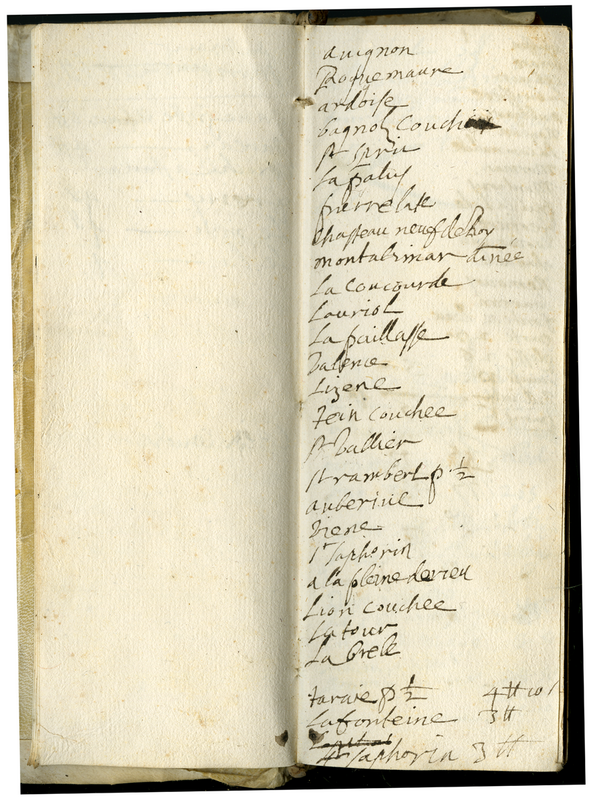 auignon
Roquemaure
ardoise
bagnolz couchee
st sprit
La palu
pierrelate
chasteau neuf de Roy
montalimar dinée
La Concourde
Lauriol
La paillasse
Valence
Lizene
tein couchee
st Vallier
st rambert p ½
auberiue
Viene
st saphorin
a la pleine de vieu
Lion couchee
La tour
La brele
taraie p ½ 4 tt 10 s
La fonteine 3 tt
st saphorin 3 tt